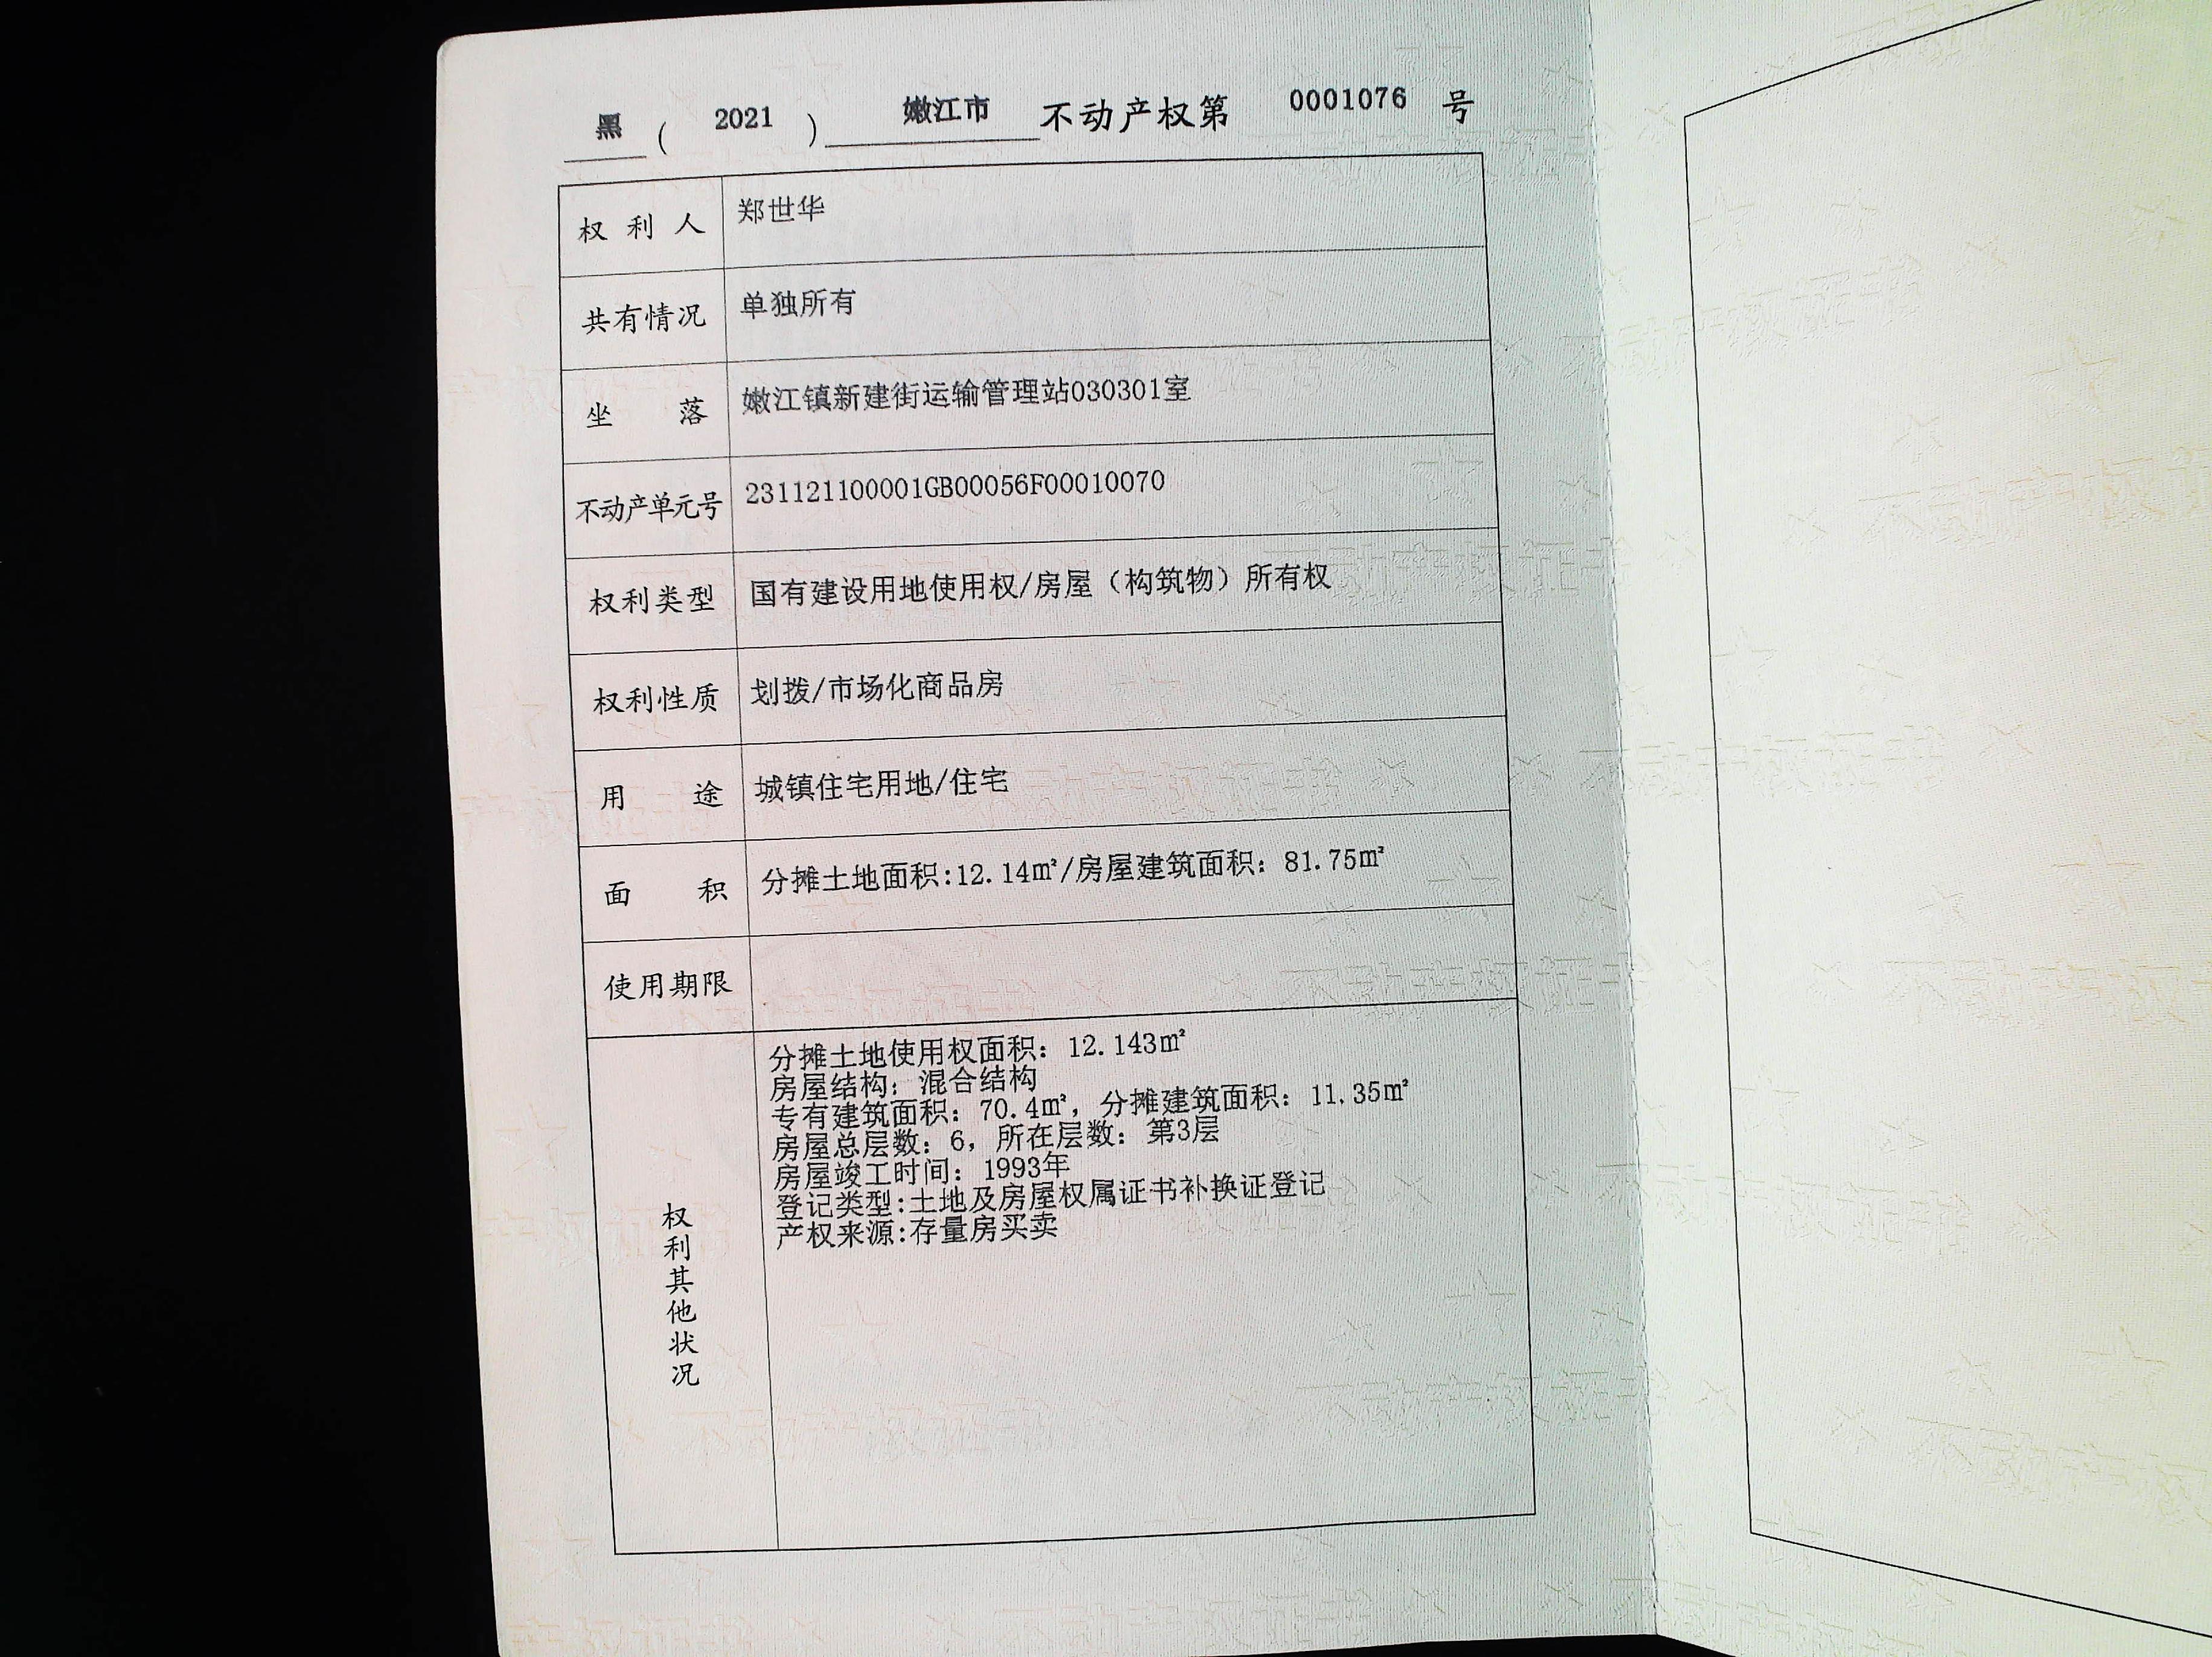 黑 ( 2021 ) 嫩江市 不动产权第 0001076 号
权利人 郑世华
共有情况 单独所有
坐落 嫩江镇新建街运输管理站030301室
不动产单元号 231121100001GB00056F00010070
权利类型 国有建设用地使用权/房屋（构筑物）所有权
权利性质 划拨/市场化商品房
用途 城镇住宅用地/住宅
面积 分摊土地面积:12.14㎡/房屋建筑面积：81.75㎡
使用期限
权利其他状况
分摊土地使用权面积：12.143㎡
房屋结构：混合结构
专有建筑面积：70.4㎡，分摊建筑面积：11.35㎡
房屋总层数：6，所在层数：第3层
房屋竣工时间：1993年
登记类型:土地及房屋权属证书补换证登记
产权来源:存量房买卖